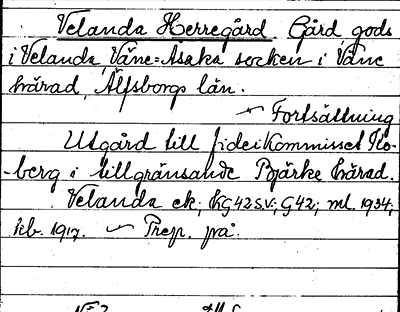 Velanda Herregård. Gård, gods
i Velanda, Väne=Åsaka socken i Väne
härad, Älfsborgs län.
~ Fortsättning
Utgård till fideikommisset Ko-
-berg i tillgränsande Bjärke härad.
Velanda ek; KG42SV; G42; ml. 1934;
feb. 1917. ~ Prep. på: